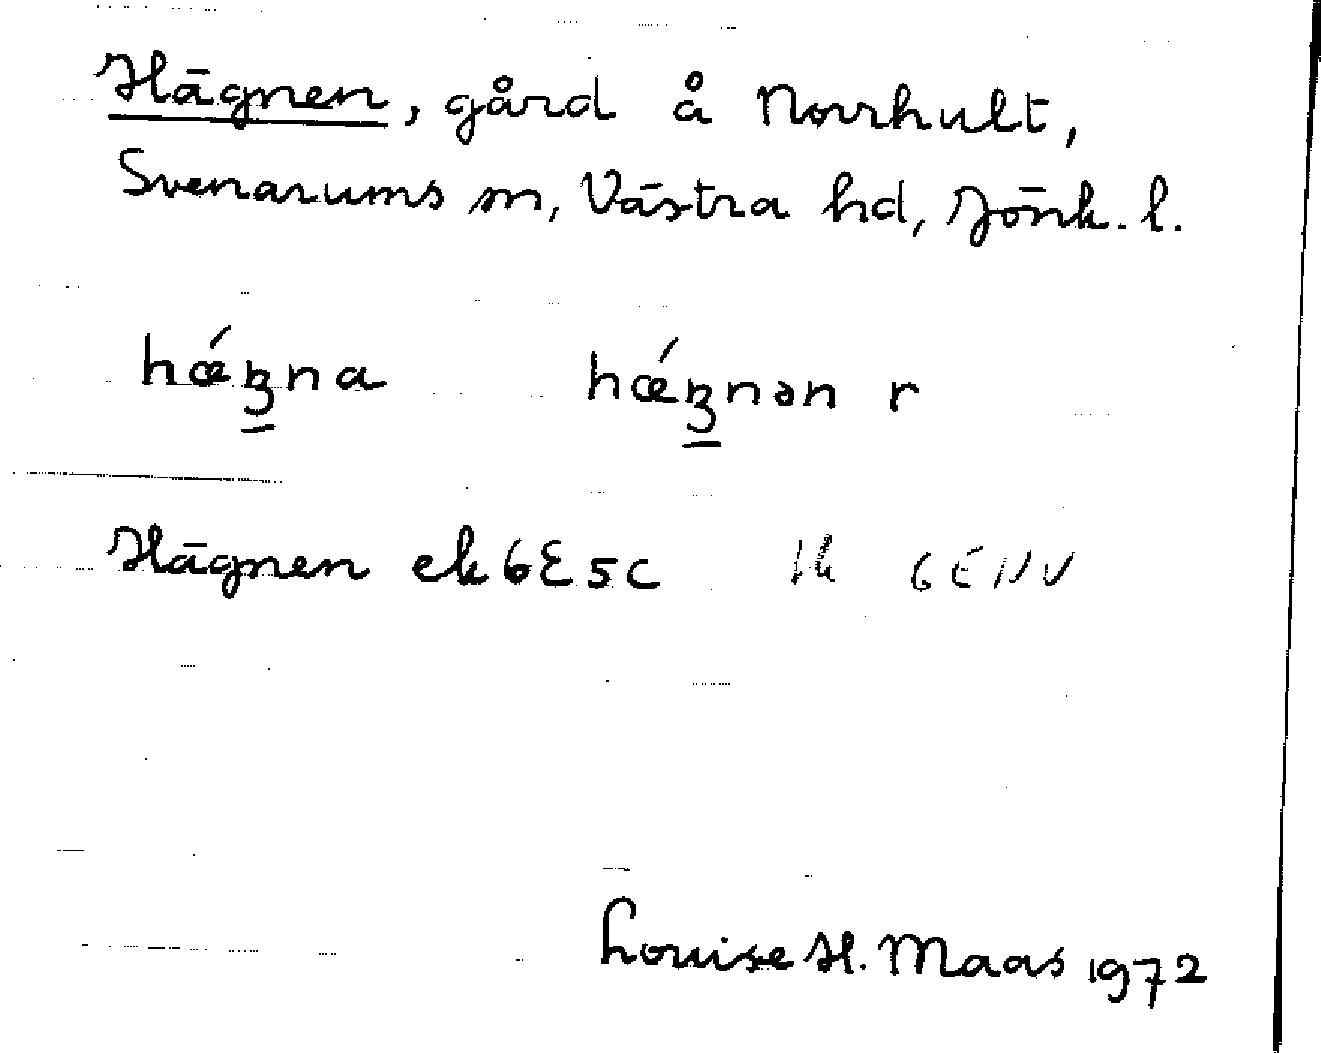 Hägnen, gård å Norrhult,
Svenarums sn, Västra hd, Jönk. l.
hǽŋna hǽŋnən r
Hägnen ek 6E5c Ik 6ENV
Louise H. Maas 1972